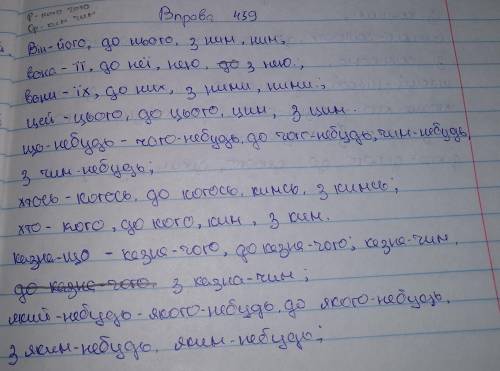 Р - кого чого
Ор - ким чим
Вправа 459
Він-його, до нього, з ним, ним;
вона - її, до неї, нею, до з нею.;
вони - їх, до них, з ними, ними.;
цей - цього, до цього, цим, з цим.
що-небудь - чого-небудь, до чого-небудь, чим-небудь,
з чим-небудь;
хтось - когось, до когось, кимсь, з кимсь;
хто - кого, до кого, ким, з ким.
казна-що - казна-чого, до казна-чого; казна-чим,
до казна-чого. з казна-чим;
який-небудь - якого-небудь, до якого-небудь,
з яким-небудь, яким-небудь;